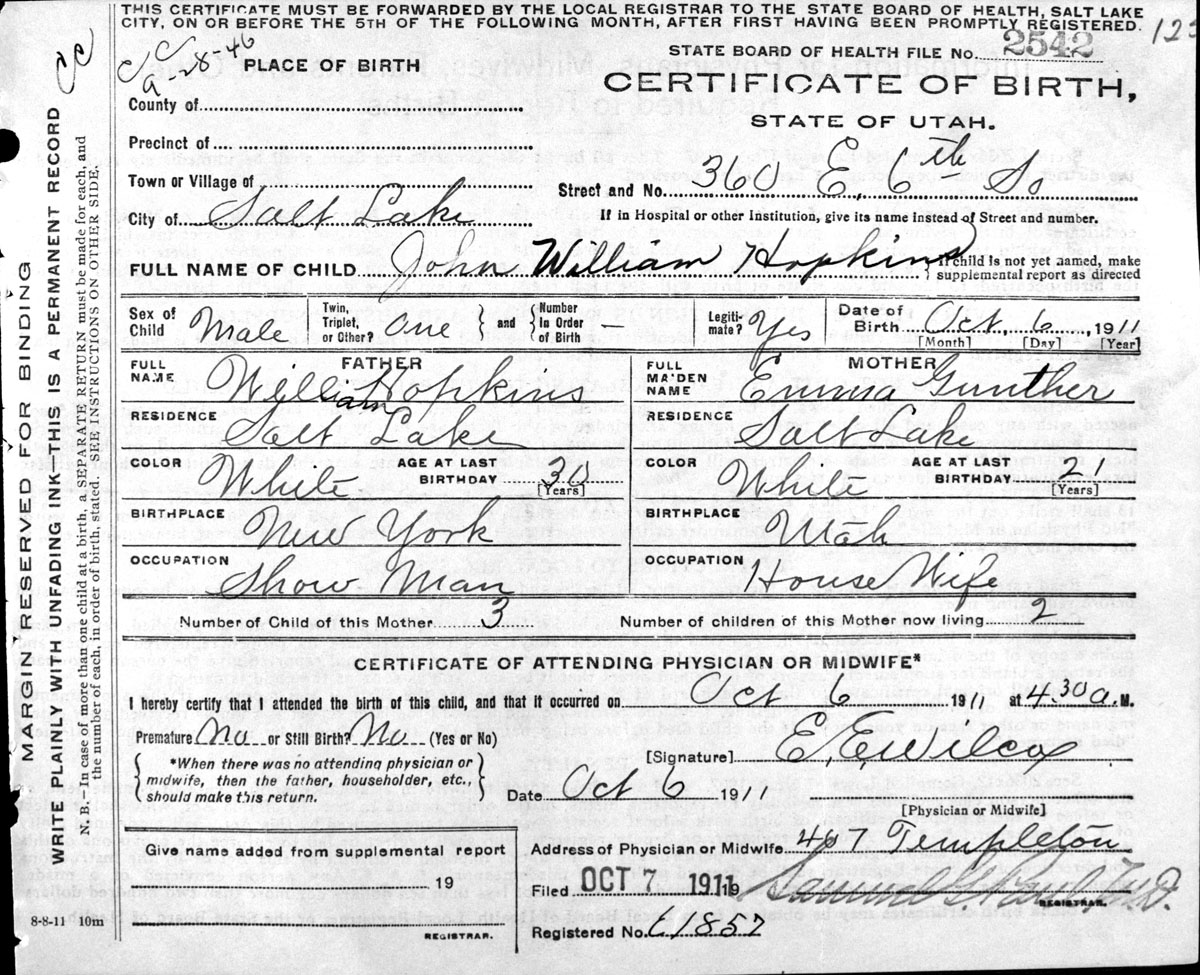 THIS CERTIFICATE MUST BE FORWARDED BY THE LOCAL REGISTRAR TO THE STATE BOARD OF HEALTH, SALT LAKE
CITY, ON OR BEFORE THE 5TH OF THE FOLLOWING MONTH, AFTER FIRST HAVING BEEN PROMPTLY REGISTERED.
STATE BOARD OF HEALTH FILE No. 2542
PLACE OF BIRTH
CERTIFICATE OF BIRTH,
STATE OF UTAH.
County of
Precinct of
Town or Village of
Street and No. 360 E 6th So
City of Salt Lake
If in Hospital or other Institution, give its name instead of Street and number.
FULL NAME OF CHILD John William Hopkins { If child is not yet named, make supplemental report as directed
Sex of Child Male Twin, Triplet, or Other? One } and { Number in Order of Birth — Legitimate? Yes Date of Birth Oct. 6, 1911
[Month] [Day] [Year]
FATHER MOTHER
FULL NAME William Hopkins FULL MAIDEN NAME Emma Gunther
RESIDENCE Salt Lake RESIDENCE Salt Lake
COLOR White AGE AT LAST BIRTHDAY 30 [Years] COLOR White AGE AT LAST BIRTHDAY 21 [Years]
BIRTHPLACE New York BIRTHPLACE Utah
OCCUPATION Show Man OCCUPATION House Wife
Number of Child of this Mother 3 Number of children of this Mother now living 2
CERTIFICATE OF ATTENDING PHYSICIAN OR MIDWIFE*
I hereby certify that I attended the birth of this child, and that it occurred on Oct 6 1911 at 4.30 a. M.
Premature No or Still Birth? No (Yes or No)
[Signature] E. E. Wilcox
{ *When there was no attending physician or midwife, then the father, householder, etc., should make this return. }
Date Oct 6 1911
[Physician or Midwife]
Give name added from supplemental report
Address of Physician or Midwife 407 Templeton
19
Filed OCT 7 1911 19
REGISTRAR.
8-8-11 10m
REGISTRAR.
Registered No.
MARGIN RESERVED FOR BINDING
WRITE PLAINLY WITH UNFADING INK-THIS IS A PERMANENT RECORD
N. B.-In case of more than one child at a birth, a SEPARATE RETURN must be made for each, and
the number of each, in order of birth, stated. SEE INSTRUCTIONS ON OTHER SIDE,